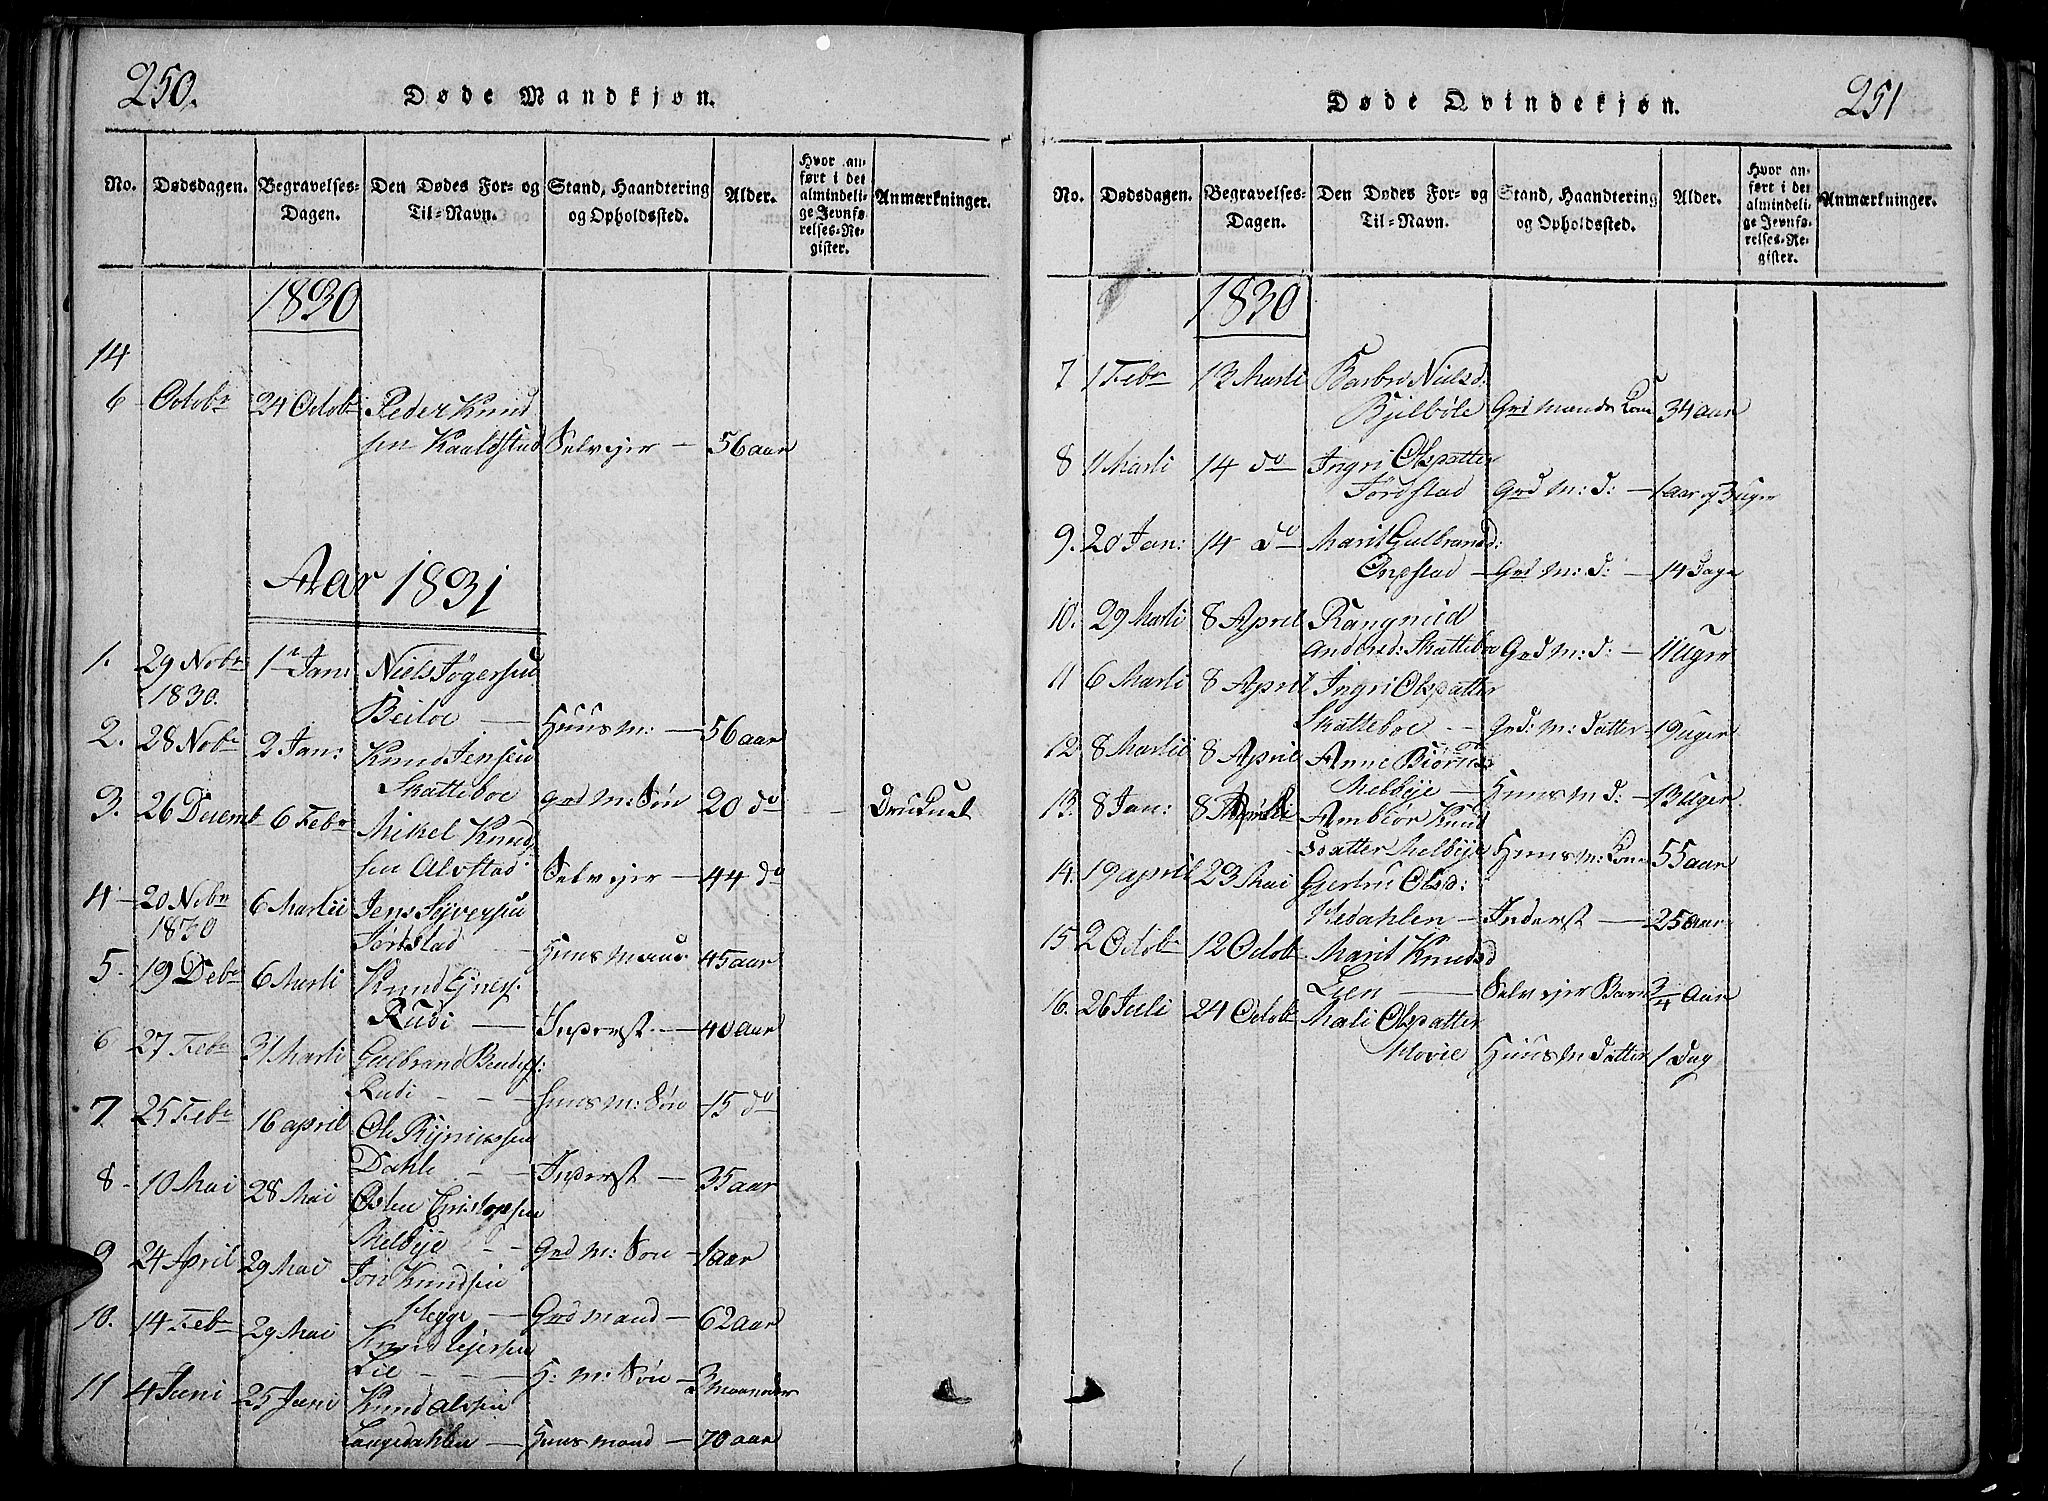 250.
Døde Mandkjøn.
No. Dødsdagen. Begravelses-Dagen. Den Dødes For- og Til-Navn. Stand, Haandtering og Opholdssted. Alder. Hvor anført i det almindelige Jevnførelses-Register. Anmærkninger.
1830
14
6 Octobr 24 Octobr Peder Knud
sen Kaaldstad Selvejer — 56 aar
Aar 1831
1. 29 Nobr 1ste Jan: Niels
1830. Beitoe — Huusm: — 56 aar
2. 28 Nobr 2 Jan: Knud Jensen
Skatteboe Grd M: Søn 20 do Druknet
3. 26 Decemb 6 Febr Mikel Knud
sen Alvstad Selvejer — 44 do
4 — 20 Nobr 6 Martii Jens Syversen
1830 Jørdstad — Huusmand 45 aar
5. 19 Debr 6 Marti Knud
Rudi — Inderst — 40 aar
6 27 Febr 31 Marti Gulbrand
Rudi — Huusm: Søn 15 do
7. 25 Febr 16 april Ole
Dahle — Inderst — 35 aar
8 — 10 Mai 28 Mai Østen Cristophsen
Melbye — Grd M: Søn — 1 aar
9 24 April 29 Mai Jon Knudsen
Hegge — Grdmand — 62 aar
10. 14 Febr 29 Mai Knud
Lie — H: M: Søn — 3 maaneder
11 4 Juni 25 Juni Knud Olsen
Langedahlen — Huusmand — 70 aar
Døde Qvindekjøn.
251
No. Dødsdagen. Begravelses-Dagen. Den Dødes For- og Til-Navn. Stand, Haandtering og Opholdssted. Alder. Hvor anført i det almindelige Jevnførelses-Register. Anmærkninger.
1830
7 1 Febr 13 Marti Barbro Nielsd:
Bjelbøle Grdmands Kone 34 aar
8 11 Marti 14 do Ingri Olsdatter
Jørdstad Grd M: d: — 1 aar og 3 Uger
9. 20 Jan: 14 do Marit Gulbrandsd:
— Grd M: d: — 14 Dage
10. 29 Marti 8 April Rangnid
Andersd: Skatteboe Grd M: d: — 11 Uger
11 6 Marti 8 April Ingri Olsdatter
Skatteboe — Grd: M: datter — 19 Uger
12 8 Martii 8 April Anne Biørnsd
Melbye — Huusm d: — 13 Uger
13. 8 Jan: 8 Ambiør Knud
sdatter Melbye Huusm: Kone 55 aar
14. 19 april 23 Mai Gertru Olsd:
Hedahlen — Inderst — 25 aar
15 2 Octobr 12 Octobr Marit Knudsd
Lien — Selvejer Barn 3/4 Aar
16. 26 Juli 24 Octobr Mali Olsdatter
Movie Huusm datter 1 Dag